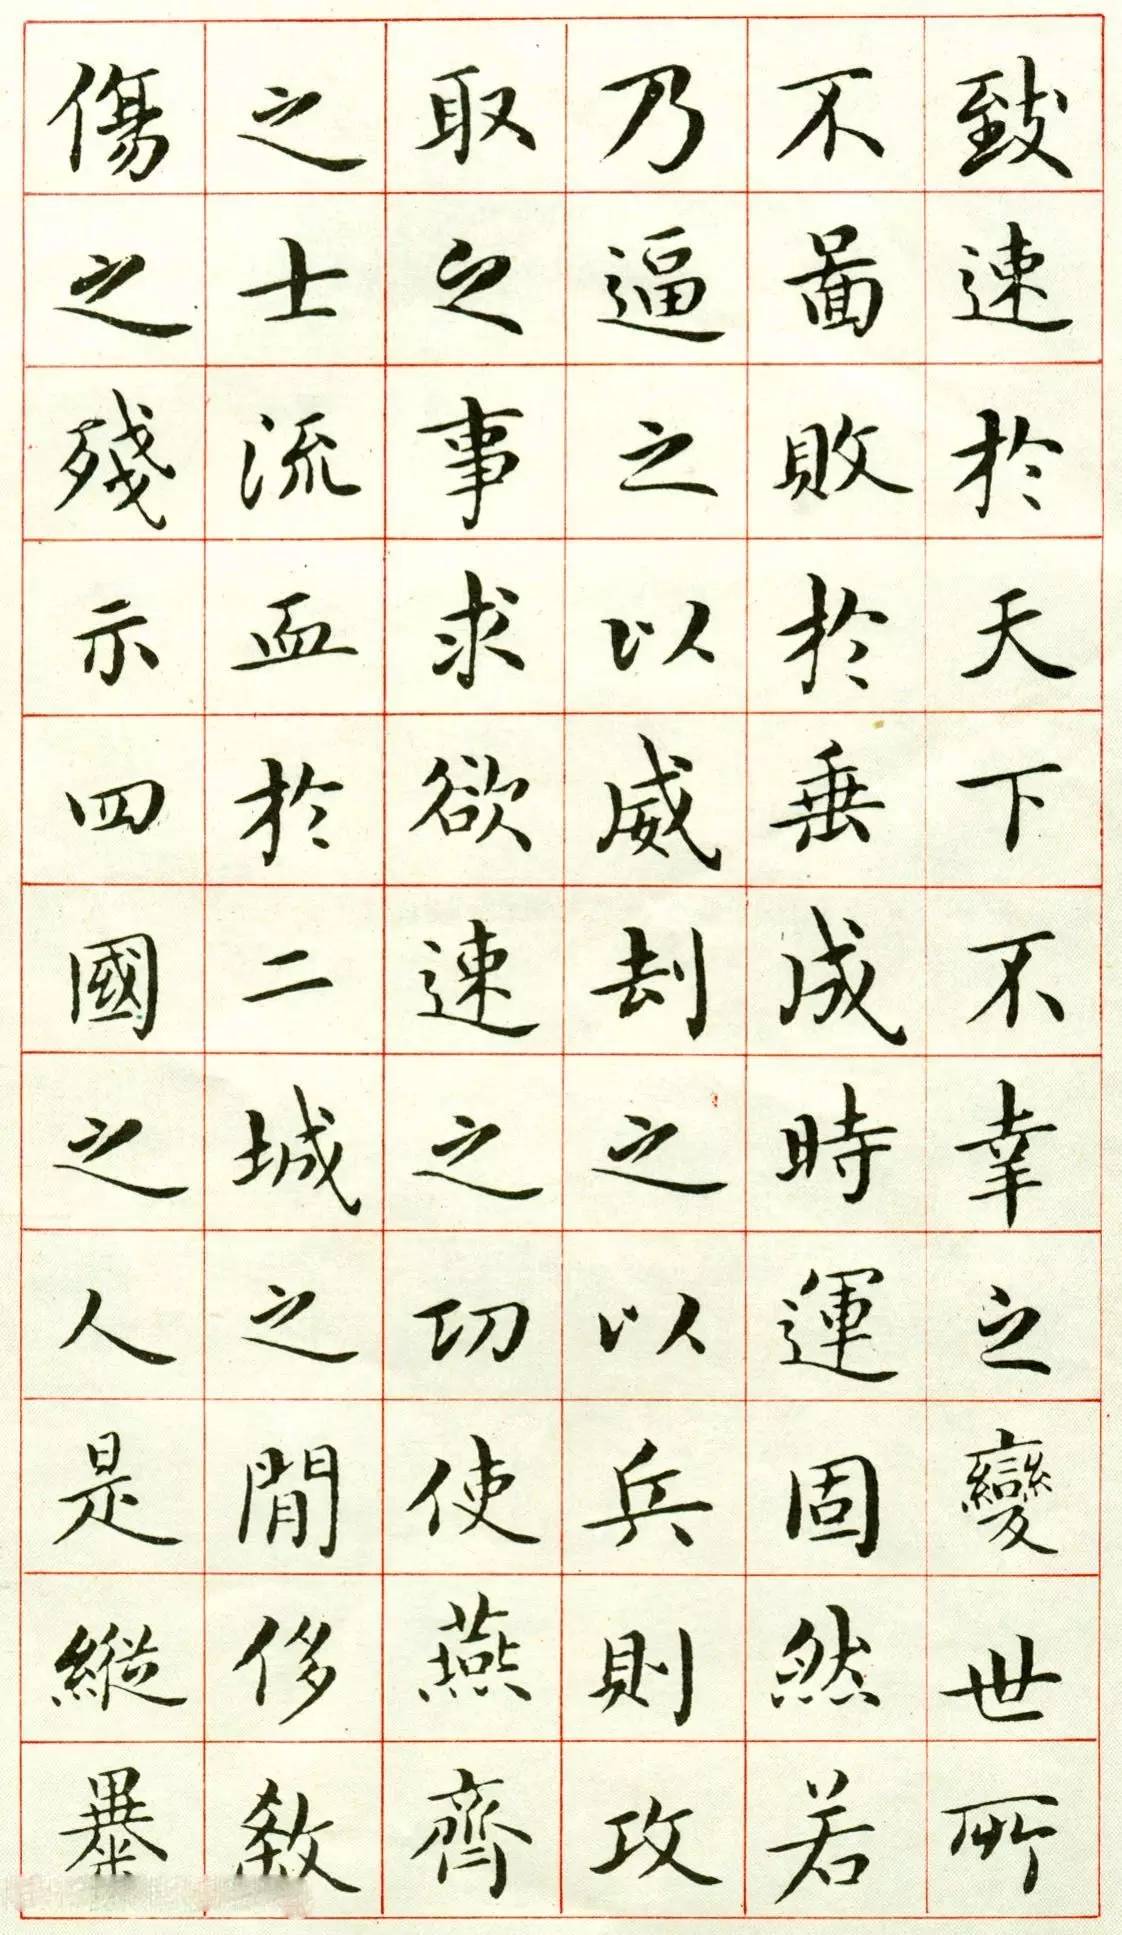 致速於天下不幸之變世所
不啚敗於垂成時運固然若
乃逼之以威刧之以兵則攻
取之事求欲速之功使燕齊
之士流血於二城之閒侈煞
傷之殘示四國之人是縱暴